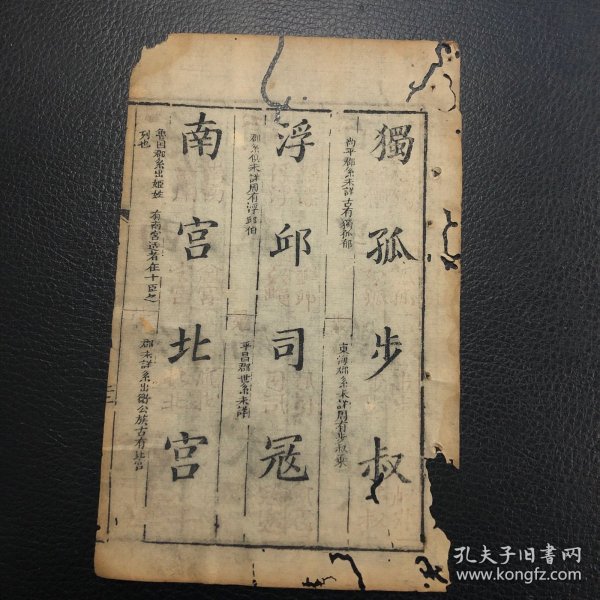 獨孤步叔
尚平郡系未詳古有獨孤郁
東海郡系未詳周有步叔乘
浮邱司冦
郡系俱未詳周有浮邱伯
平昌郡世系未詳
南宮北宮
魯国郡系出姬姓 有南宮适者在十臣之
列也
郡未詳系出衛公族古有北宮
孔夫子旧书网
www.kongfz.com